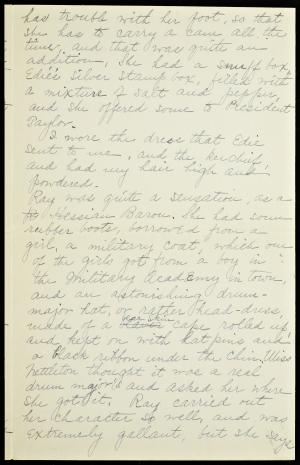 has trouble with her foot, so that
she has to carry a cane all the
time, and that was quite an
addition. She had a snuff box,
Edie's silver stamp box, filled with
a mixture of salt and pepper,
and she offered some to President
Taylor.
I wore the dress that Edie
sent to me, and the kerchief,
and had my hair high and
powdered.
Ray was quite a sensation, as a
Hessian Baron. She had some
rubber boots, borrowed from a
girl, a military coat, which one
of the girls got from a boy in
the Military Academy in town,
and an astonishing drum-
major hat, or rather head-dress,
made of a bear skin cape rolled up,
and kept on with hat pins and
a black ribbon under the chin. Miss
Nettleton thought it was a real
drum major's and asked her where
she got it. Ray carried out
her character so well, and was
extremely gallant, but she says